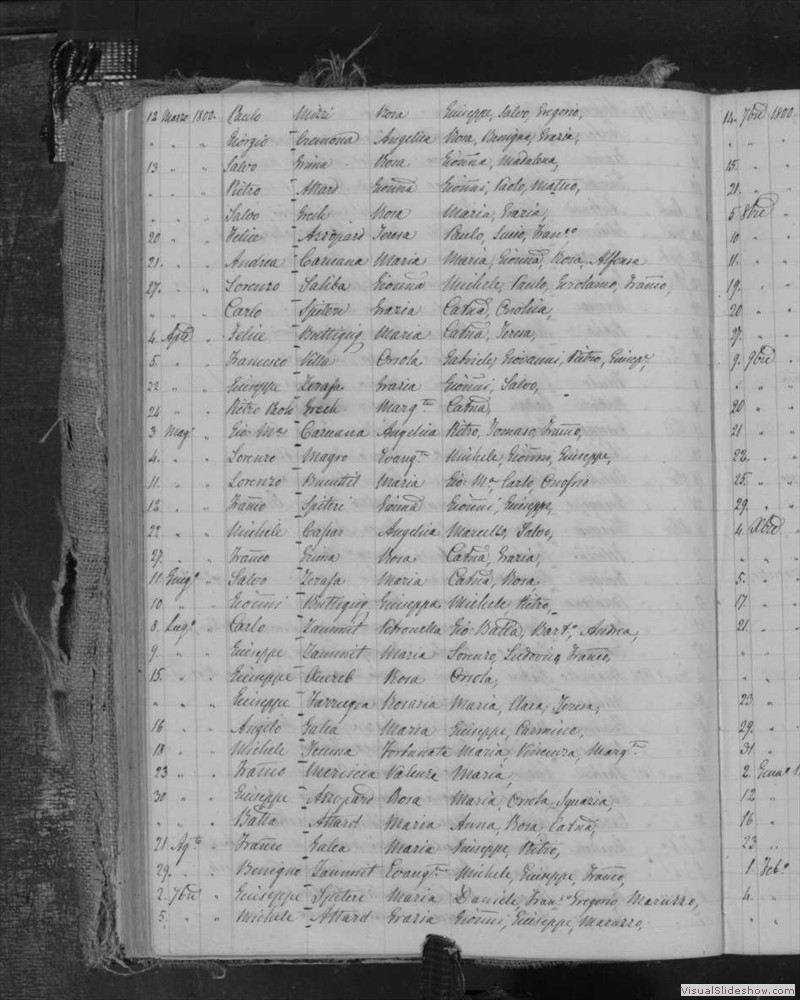 12 Marzo 1800 Paulo Mizzi Rosa Giuseppe, Salvo, Gregorio,
" " " Giorgio Cremona Angelica Rosa, Benigna, Grazia,
13 " " Salvo Grima Rosa Gionna, Madalena,
" " " Pietro Attard Gionna Gionni, Paolo, Matteo,
" " " Salvo Grech Rosa Maria, Grazia,
20 " " Felice Azzopard Teresa Paulo, Lucio, Franco
21 " " Andrea Caruana Maria Maria, Gionna, Rosa, Alfonso
27 " " Lorenzo Saliba Gionna Michele, Paulo, Girolamo, Franco,
" " " Carlo Spiteri Grazia Catna,
4 Aple " Felice Buttigig Maria Catna, Teresa,
5 " " Francesco Vella Orsola Gabriele, Giovanni, Pietro, Giusepe,
22 " " Giuseppe Zerafa Grazia Gionni, Salvo,
24 " " Pietro Paolo Grech Margta Catna,
3 Mago " Gio Ma Caruana Angelica Pietro, Tomaso, Franco,
4 " " Lorenzo Magro Evangta Michele, Gionni, Giuseppe,
11 " " Lorenzo Maria Gio Ma Carlo Onofrio
12 " " Franco Spiteri Gionna Gionni, Giuseppe,
22 " " Michele Caspar Angelica Marcello, Salvo,
27 " " Franco Grima Rosa Catna, Grazia,
11 Giugo " Salvo Zerafa Maria Catna, Rosa
10 " " Gionni Buttigig Giuseppa Michele Pietro,
8 Lugo " Carlo Zammit Petronella Gio Batta, Barto, Andrea,
9 " " Giuseppe Zammit Maria Lorenzo, Ludovico, Franco,
15 " " Giuseppe Rosa Orsola,
" " " Giuseppe Farrugia Rosaria Maria, Clara, Teresa,
16 " " Angelo Galea Maria Giuseppe, Carmine,
18 " " Michele Fortunata Maria, Vincenza, Margta
23 " " Franco Valenza Maria,
30 " " Giuseppe Azzopard Rosa Maria, Orsola, Ignazia,
" " " Batta Attard Maria Anna, Rosa, Catna,
21 Agto " Franco Galea Maria Giuseppe, Pietro,
29 " " Benigno Zammit Evangta Michele, Giuseppe, Franco,
2 7bre " Giuseppe Spiteri Maria Daniele, Franco Gregorio, Maruzzo,
5 " " Michele Attard Grazia Gionni, Giuseppe, Maruzzo,
14 7bre 1800
" "
15 "
21 "
5 8bre
10 "
11 "
19 "
20 "
27 "
9 9bre
" "
20 "
21 "
22 "
25 "
29 "
4 Xbre
" "
5 "
17 "
21 "
" "
" "
23 "
29 "
31 "
2 Genro
12 "
16 "
23 "
1 Febo
4 "
" "
VisualSlideshow.com